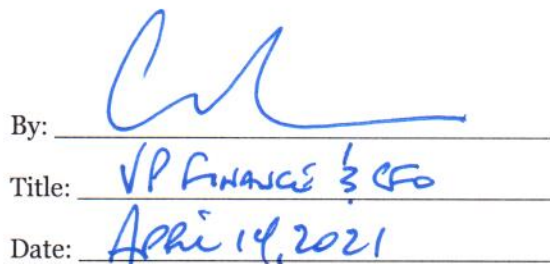 By:
Title: VP FINANCE & CFO
Date: APRIL 14, 2021